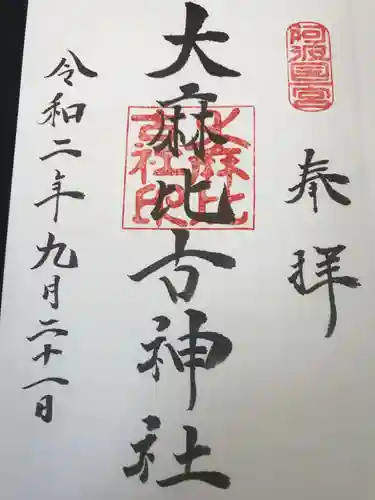 阿波国一宮
奉拝
大麻比古神社
大麻比古社印
令和二年九月二十一日